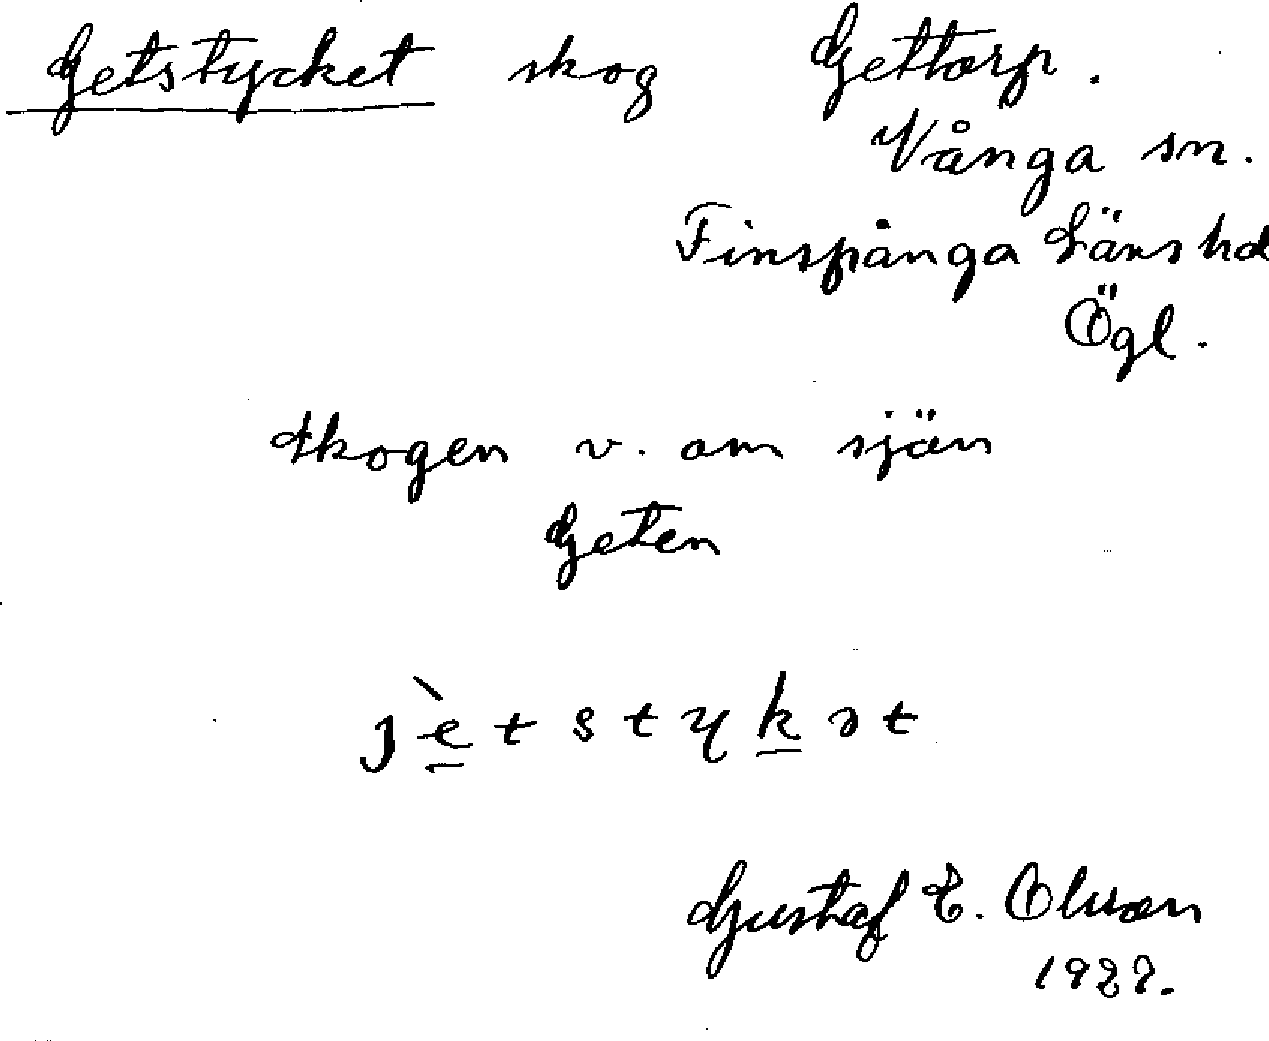 Getstycket skog Gettorp.
Vånga sn.
Finspånga Läns hd
Ögl.
Skogen v. om sjön
Geten
jè̱tstyḵət
Gustaf E. Olsson
1927.